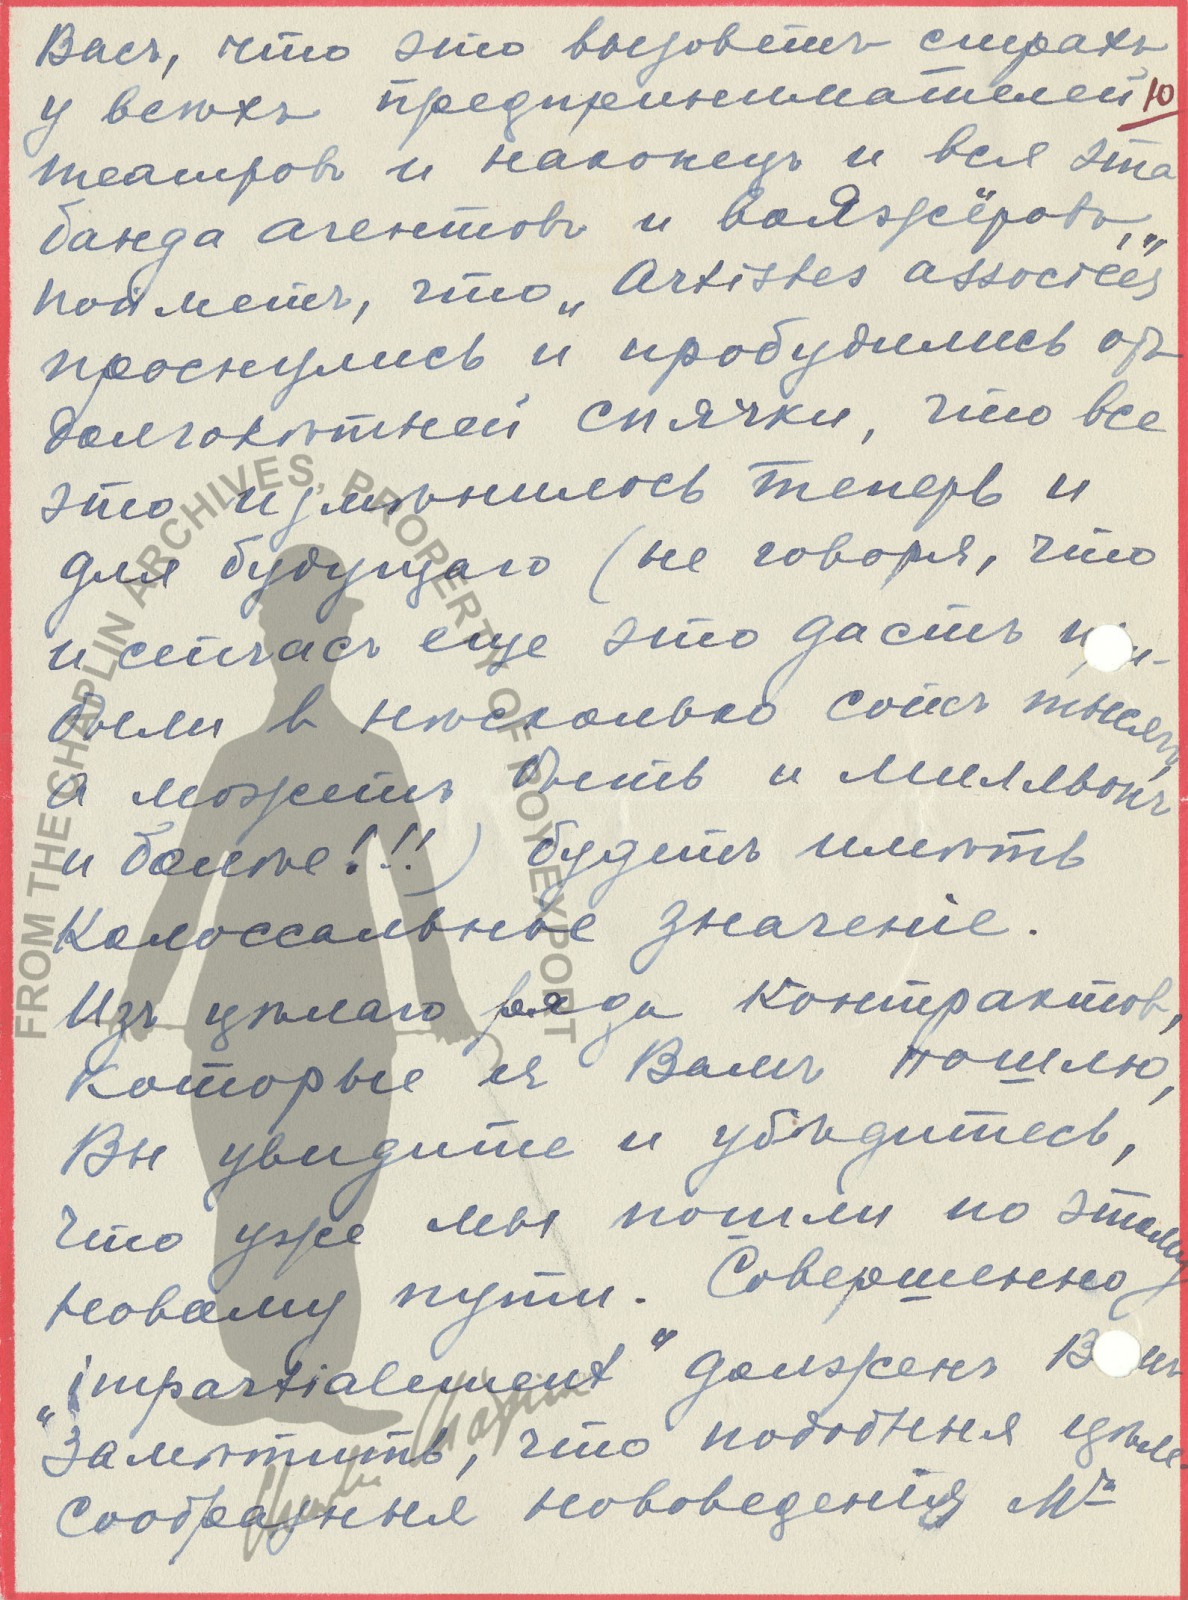 Васъ, что это вызоветъ страхъ
у всѣхъ предпринимателей
10
театровъ и наконецъ и вся эта
банда агентовъ и „вояжёровъ“,
поймётъ, что „Artistes associées“
проснулись и пробудились отъ
долголѣтней спячки, что все
это измѣнилось теперь и
для будущаго (не говоря, что
и сейчасъ еще это дастъ при-
были в нѣсколько сотъ тысячъ,
а можетъ быть и миллiонъ
и болѣе!!!) будетъ имѣть
Колоссальное значенiе.
Изъ цѣлаго ряда Контрактов,
которые я Вамъ пошлю,
Вы увидите и убѣдитесь,
что уже мы пошли по этому
новому пути. Совершенно
„impartialement“ долженъ Вамъ
замѣтить, что подобныя цѣле-
сообразныя нововеденiя Mr
FROM THE CHAPLIN ARCHIVES, PROPERTY OF ROY EXPORT
Charlie Chaplin